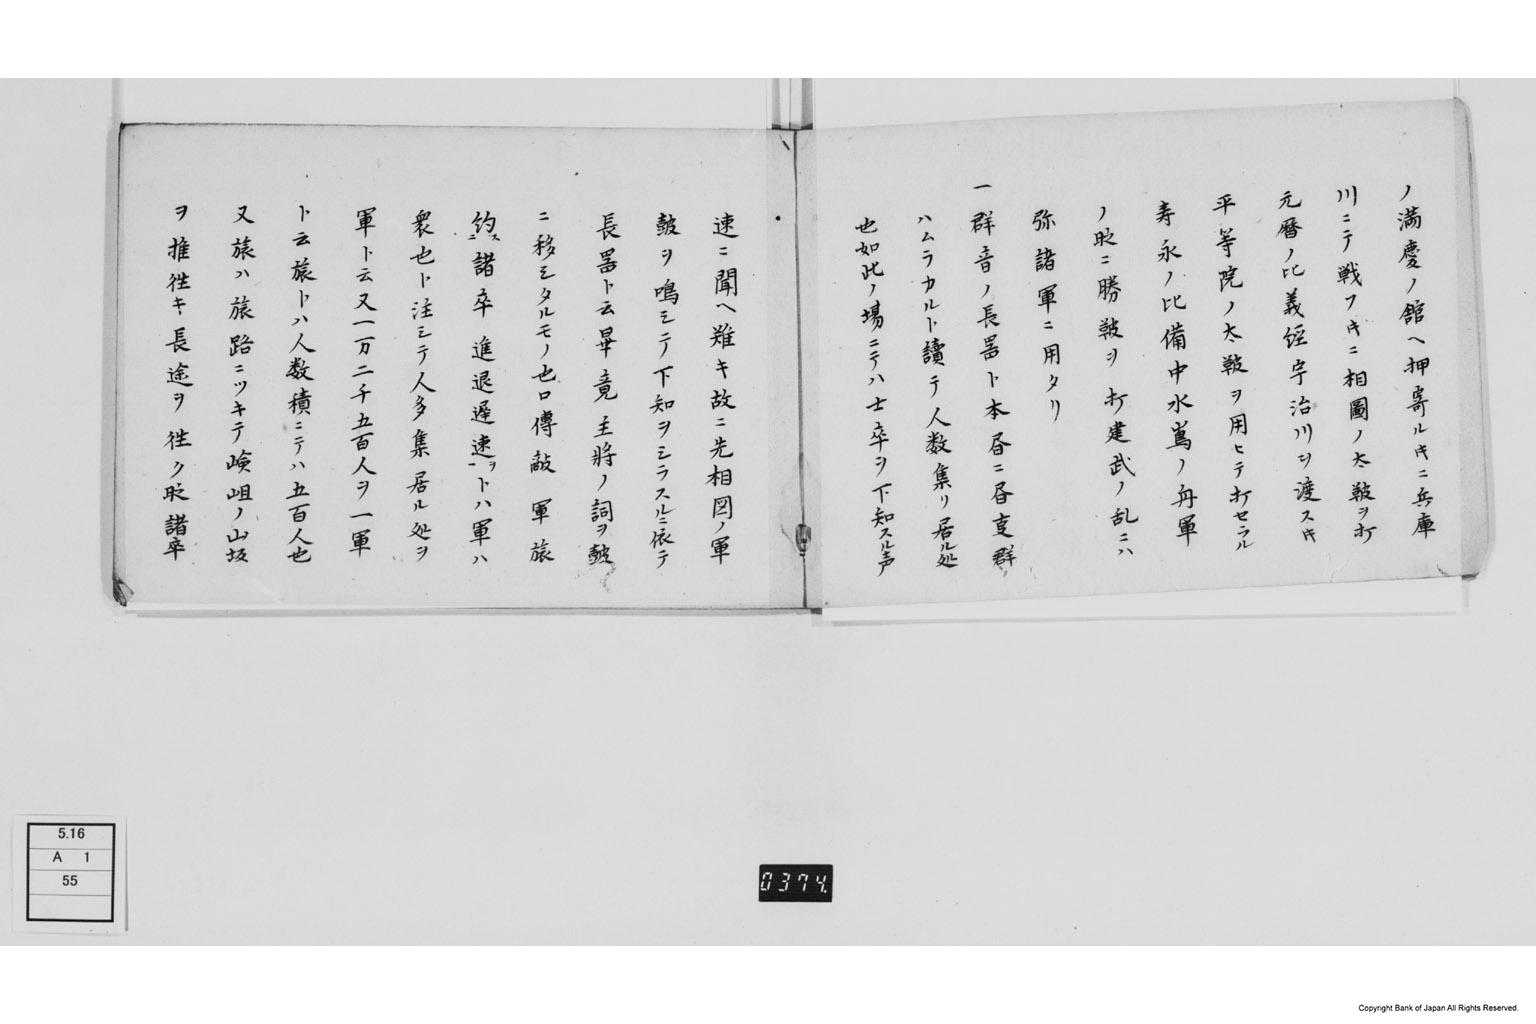 ノ満慶ノ館ヘ押寄ルキニ兵庫
川ニテ戦フキニ相圖ノ太鞁ヲ打
元暦ノ比義経宇治川ヲ渡スキ
平等院ノ太鞁ヲ用ヒテ打セラル
寿永ノ比備中水嶌ノ舟軍
ノ時ニ勝鞁ヲ打建武ノ乱ニハ
弥諸軍ニ用タリ
一群音ノ長噐ト本昼ニ昼夏群
ハムラカルト讀テ人数集リ居ル処
也如此ノ場ニテハ士卒ヲ下知スル声
速ニ聞ヘ難キ故ニ先相図ノ軍
皷ヲ鳴シテ下知ヲシラスルニ依テ
長噐ト云畢竟主將ノ詞ヲ皷
ニ移シタルモノ也口傳敵軍旅
約ニス諸卒進退遅速ヲ一トハ軍ハ
衆也ト注シテ人多集居ル処ヲ
軍ト云又一万二千五百人ヲ一軍
ト云旅トハ人数積ニテハ五百人也
又旅ハ旅路ニツキテ嶮岨ノ山坂
ヲ推徃キ長途ヲ徃ク時諸卒
5.16
A 1
55
0374.
Copyright Bank of Japan All Rights Reserved.